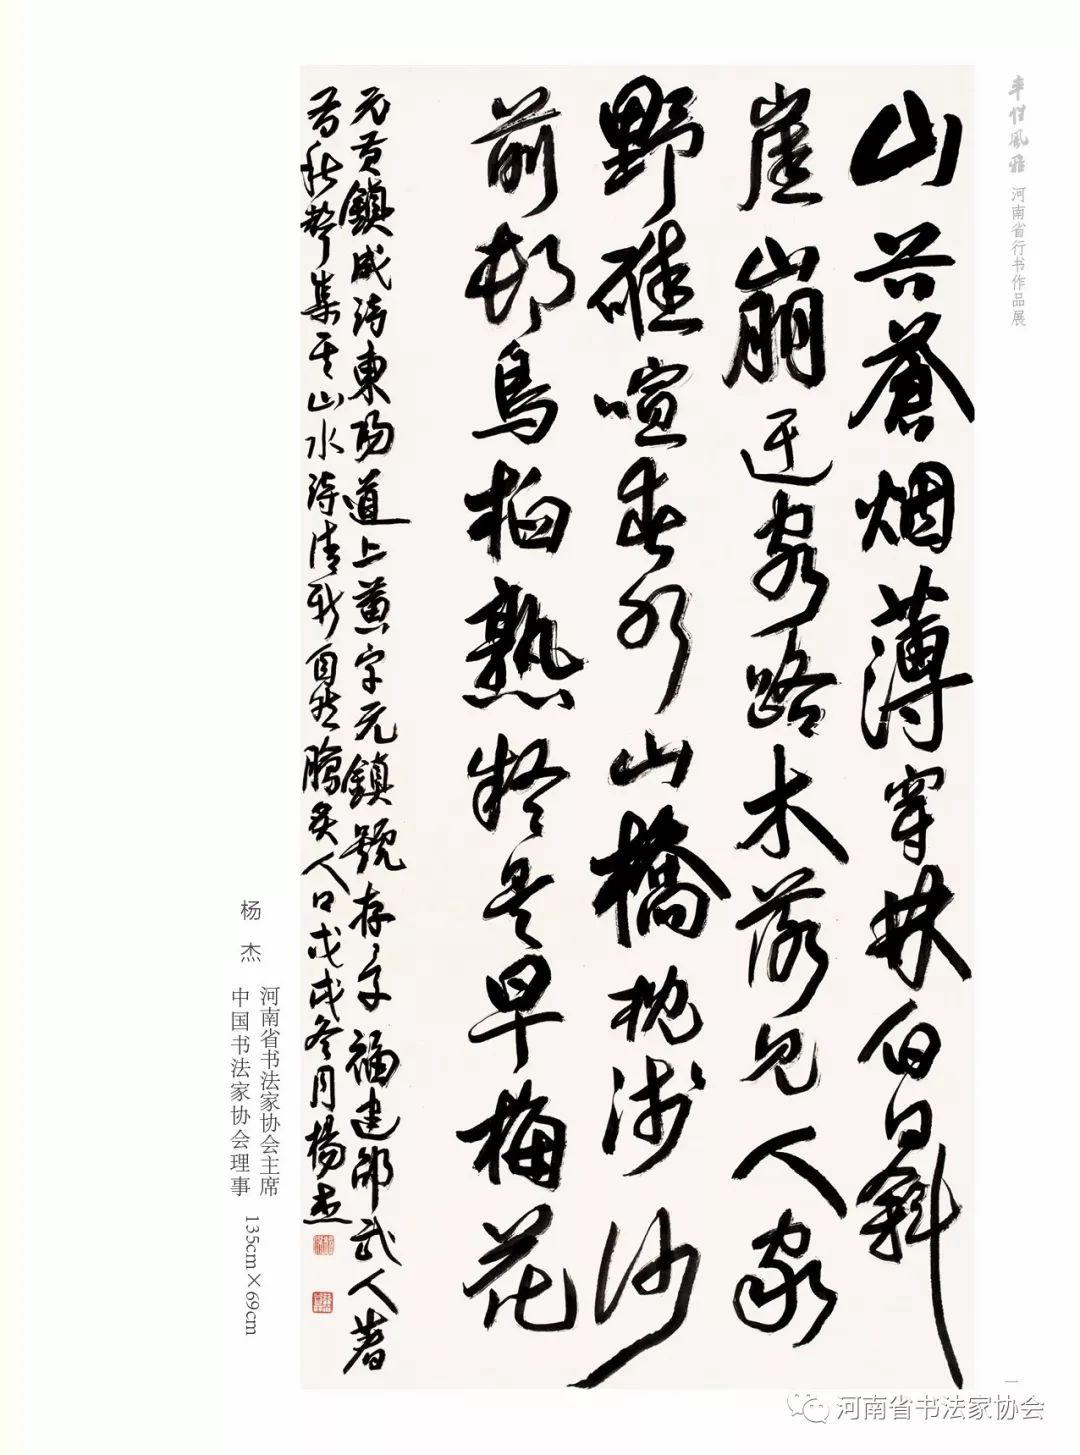 率性風雅 河南省行书作品展
山谷蒼烟薄穿林白日斜
崖崩迂客路木落见人家
野碓喧春水山橋枕浅沙
前邨烏桕熟疑是早梅花
元黄鎮成诗東陽道上黄字元鎮號存々子福建邵武人著
有秋聲集其山水诗清新自然膾炙人口戊戌冬月楊杰
杨杰
河南省书法家协会主席
中国书法家协会理事 135cm×69cm
一
河南省书法家协会